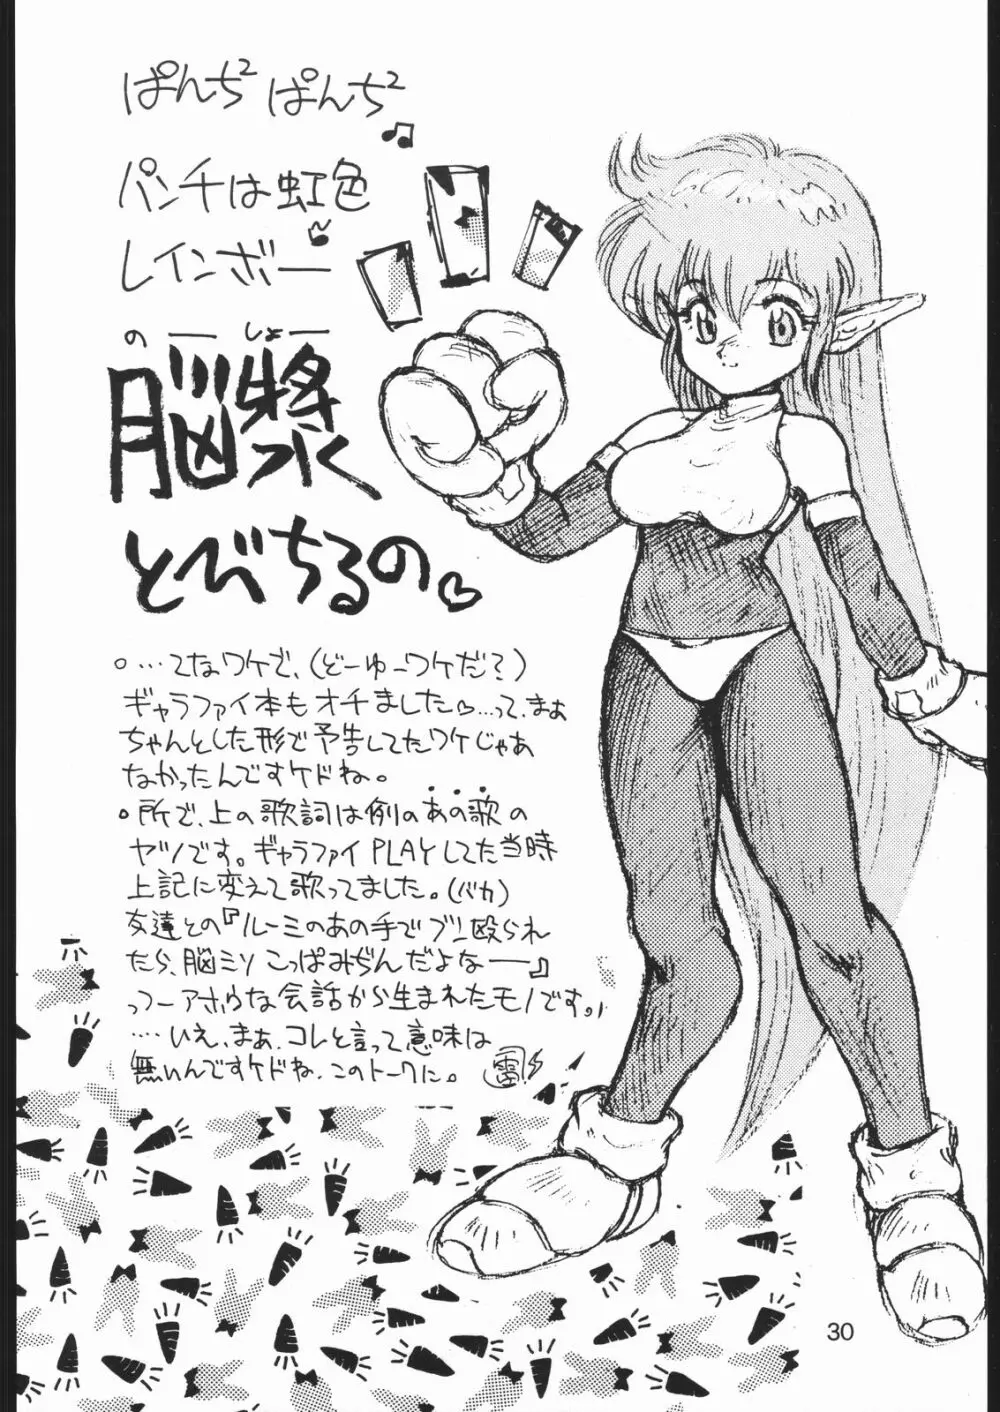 ぱんち² ぱんち²♫
パンチは虹色
レインボー♪
のーしょー
脳漿
とびちるの♡
○…てなワケで、(どーゆーワケだ?)
ギャラファイ本もオチました♡…って、まぁ
ちゃんとした形で予告してたワケじゃあ
なかったんですけどね。
○所で、上の歌詞は例のあの歌の
ヤツです。ギャラファイPLAYしてた当時
上記に変えて歌ってました。(バカ)
友達との『ルーミのあの手でブン殴られ
たら、脳ミソこっぱみぢんだよなー』
っつーアホゥな会話から生まれたモノです。
…いえ、まぁ、コレと言って意味は
無いんですケドね、このトークに。 雷
30